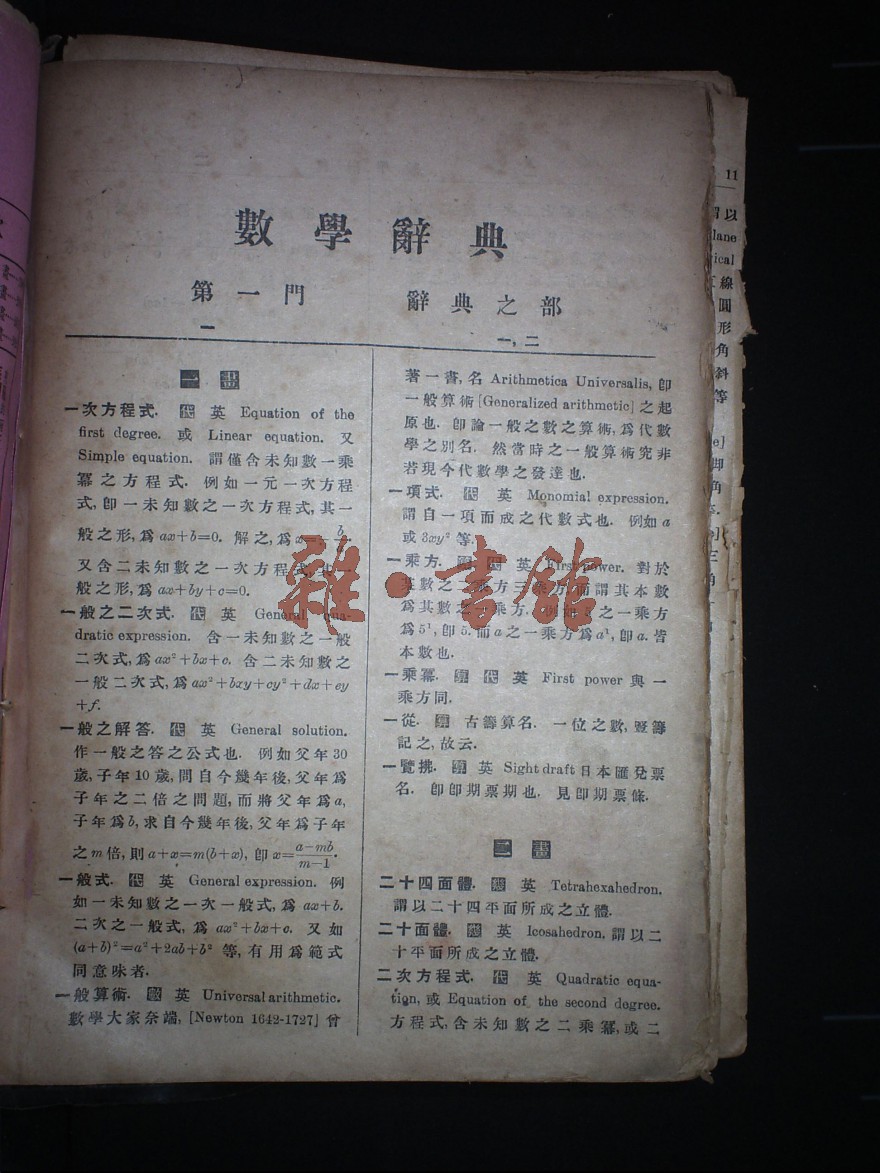 數學辭典
第一門 辭典之部
一
一,二
一畫
一次方程式. 代 英 Equation of the
first degree. 或 Linear equation. 又
Simple equation. 謂僅含未知數一乘
冪之方程式. 例如一元一次方程
式, 卽一未知數之一次方程式, 其一
般之形, 爲 ax+b=0. 解之, 爲 x=-b/a.
又含二未知數之一次方程式, 其一
般之形, 爲 ax+by+c=0.
一般之二次式. 代 英 General qua-
dratic expression. 含一未知數之一般
二次式, 爲 ax²+bx+c. 含二未知數之
一般二次式, 爲 ax²+bxy+cy²+dx+ey
+f.
一般之解答. 代 英 General solution.
作一般之答之公式也. 例如父年30
歲, 子年10歲, 問自今幾年後, 父年爲
子年之二倍之問題, 而將父年爲a,
子年爲b, 求自今幾年後, 父年爲子年
之m倍, 則 a+x=m(b+x), 卽 x=(a-mb)/(m-1).
一般式. 代 英 General expression. 例
如一未知數之一次一般式, 爲 ax+b.
二次之一般式, 爲 ax²+bx+c. 又如
(a+b)²=a²+2ab+b² 等, 有用爲範式
同意味者.
一般算術. 英 Universal arithmetic.
數學大家奈端, [Newton 1642-1727] 曾
著一書, 名 Arithmetica Universalis, 卽
一般算術 [Generalized arithmetic] 之起
原也. 卽論一般之數之算術, 爲代數
學之別名. 然當時之一般算術究非
若現今代數學之發達也.
一項式. 代 英 Monomial expression.
謂自一項而成之代數式也. 例如a
或 3xy² 等.
一乘方. 英 First power. 對於
某數之二乘方三乘方, 而謂其本數
爲其數之一乘方. 例如5之一乘方
爲5¹, 卽5. 而a之一乘方爲a¹, 卽a. 皆
本數也.
一乘冪. 算 代 英 First power 與一
乘方同.
一從. 算 古籌算名. 一位之數, 豎籌
記之, 故云.
一覽拂. 算 英 Sight draft 日本匯兌票
名. 卽卽期票期也. 見卽期票條.
二畫
二十四面體. 幾 英 Tetrahexahedron.
謂以二十四平面所成之立體.
二十面體. 幾 英 Icosahedron, 謂以二
十平面所成之立體.
二次方程式. 代 英 Quadratic equa-
tion, 或 Equation of the second degree.
方程式, 含未知數之二乘冪, 或二
雜·書館
11
以
lane
ical
線
圓
形
角
斜
等